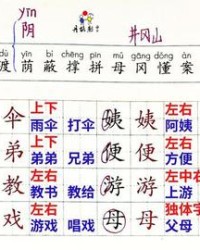 yīn
阴 井冈山
dù yīn bì chēng pīn mǔ gāng dǒng àn
渡 荫 蔽 撑 拼 母 冈 懂 案
伞 上下 雨伞 打伞 姨 姨 左右 阿姨
弟 上下 弟弟 兄弟 便 便 左右 方便
教 左右 教书 教给 游 游 左中右 上游
戏 左右 游戏 唱戏 母 母 独体字 父母